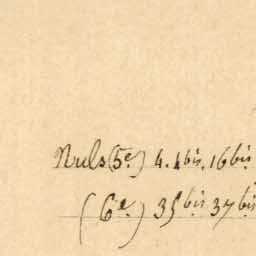 Nuls (5e.) 4. 4bis. 16bis.
(6e.) 35bis 37bis